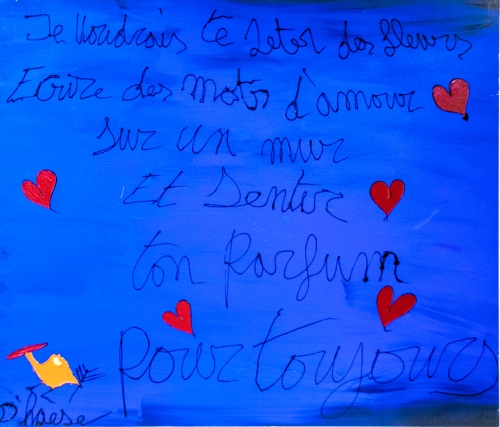 Je voudrais te jeter des fleurs
Ecrire des mots d'amour
sur un mur
Et sentir
ton parfum
pour toujours